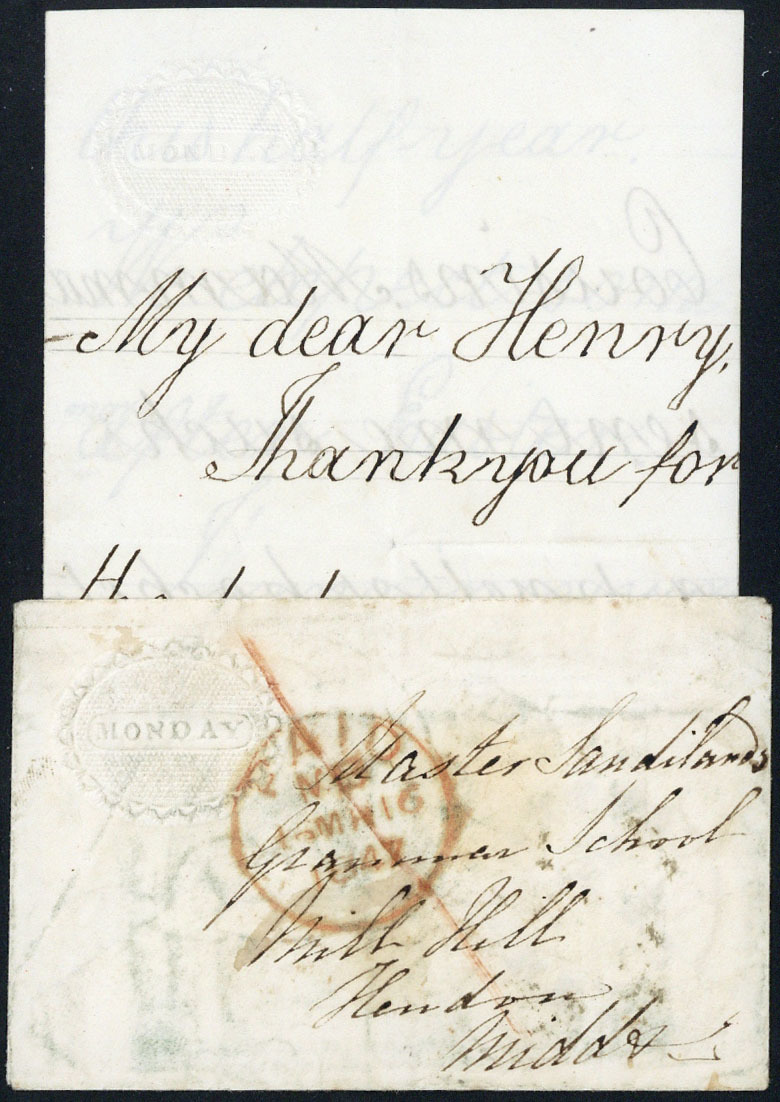 this half year.
My dear Henry,
Thankyou for
MONDAY
PAID
16 MR 16
1847
Master Sandilands
Grammar School
Mill Hill
Hendon
Middx